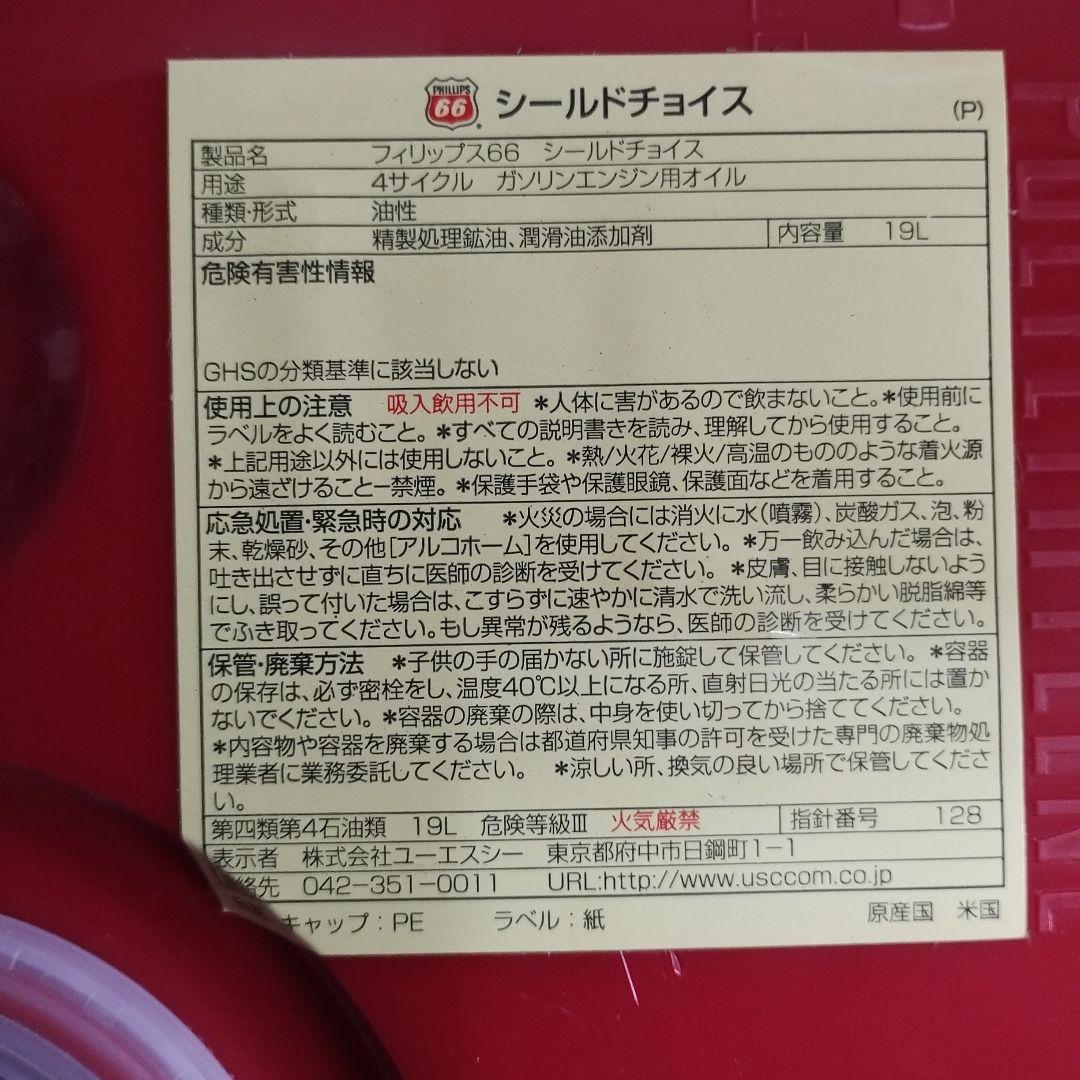 PHILLIPS 66 シールドチョイス (P)
製品名 フィリップス66 シールドチョイス
用途 4サイクル ガソリンエンジン用オイル
種類・形式 油性
成分 精製処理鉱油、潤滑油添加剤 内容量 19L
危険有害性情報
GHSの分類基準に該当しない
使用上の注意 吸入飲用不可 *人体に害があるので飲まないこと。*使用前に
ラベルをよく読むこと。*すべての説明書きを読み、理解してから使用すること。
*上記用途以外には使用しないこと。*熱/火花/裸火/高温のもののような着火源
から遠ざけることー禁煙。*保護手袋や保護眼鏡、保護面などを着用すること。
応急処置・緊急時の対応 *火災の場合には消火に水(噴霧)、炭酸ガス、泡、粉
末、乾燥砂、その他[アルコホーム]を使用してください。*万一飲み込んだ場合は、
吐き出させずに直ちに医師の診断を受けてください。*皮膚、目に接触しないよう
にし、誤って付いた場合は、こすらずに速やかに清水で洗い流し、柔らかい脱脂綿等
でふき取ってください。もし異常が残るようなら、医師の診断を受けてください。
保管・廃棄方法 *子供の手の届かない所に施錠して保管してください。*容器
の保存は、必ず密栓をし、温度40℃以上になる所、直射日光の当たる所には置か
ないでください。*容器の廃棄の際は、中身を使い切ってから捨ててください。
*内容物や容器を廃棄する場合は都道府県知事の許可を受けた専門の廃棄物処
理業者に業務委託してください。 *涼しい所、換気の良い場所で保管してくださ
い。
第四類第4石油類 19L 危険等級Ⅲ 火気厳禁 指針番号 128
表示者 株式会社ユーエスシー 東京都府中市日鋼町1-1
絡先 042-351-0011 URL:http://www.usccom.co.jp
キャップ:PE ラベル:紙 原産国 米国